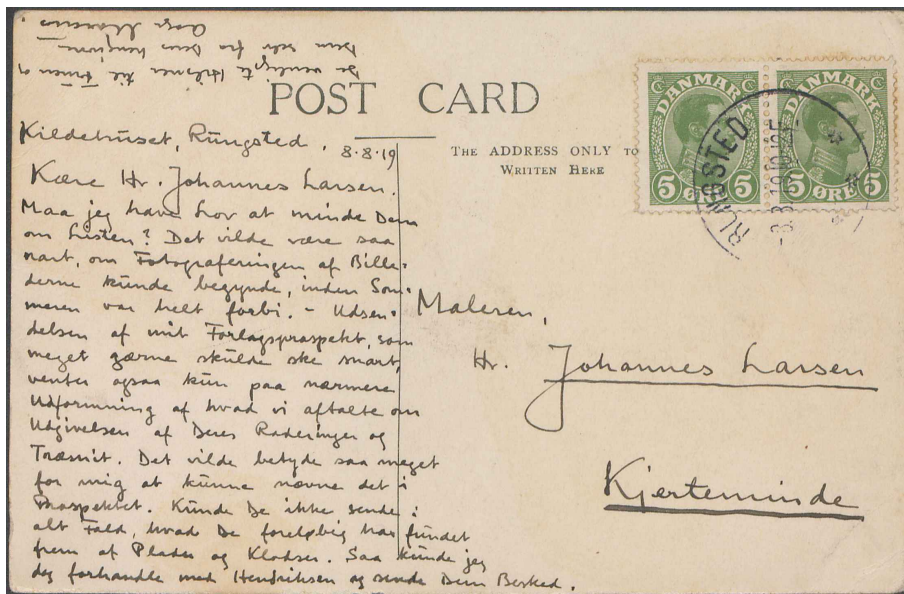 POST CARD
THE ADDRESS ONLY TO
WRITTEN HERE
DANMARK
5 ØRE 5
DANMARK
5 ØRE 5
RUNGSTED
Kildehuset, Rungsted. 8.8.19
Kære Hr. Johannes Larsen.
Maa jeg have Lov at minde Dem
om Listen? Det vilde være saa
rart, om Fotograferingen af Bille-
derne kunde begynde, inden Som-
meren var helt forbi. - Udsen-
delsen af mit Forlagsprospekt, som
meget gærne skulde ske snart,
venter ogsaa kun paa nærmere
Udformning af hvad vi aftalte om
Udgivelsen af Deres Raderinger og
Træsnit. Det vilde betyde saa meget
for mig at kunne nævne det i
Prospektet. Kunde De ikke sende i
alt Fald, hvad De foreløbig har fundet
frem af Plader og Klodser. Saa kunde jeg
dog forhandle med Hendriksen og sende Dem Besked.
De venligste Hilsner til Fruen og
Dem selv fra Deres hengivne
Aage Marcus
Maleren,
Hr. Johannes Larsen
Kjerteminde